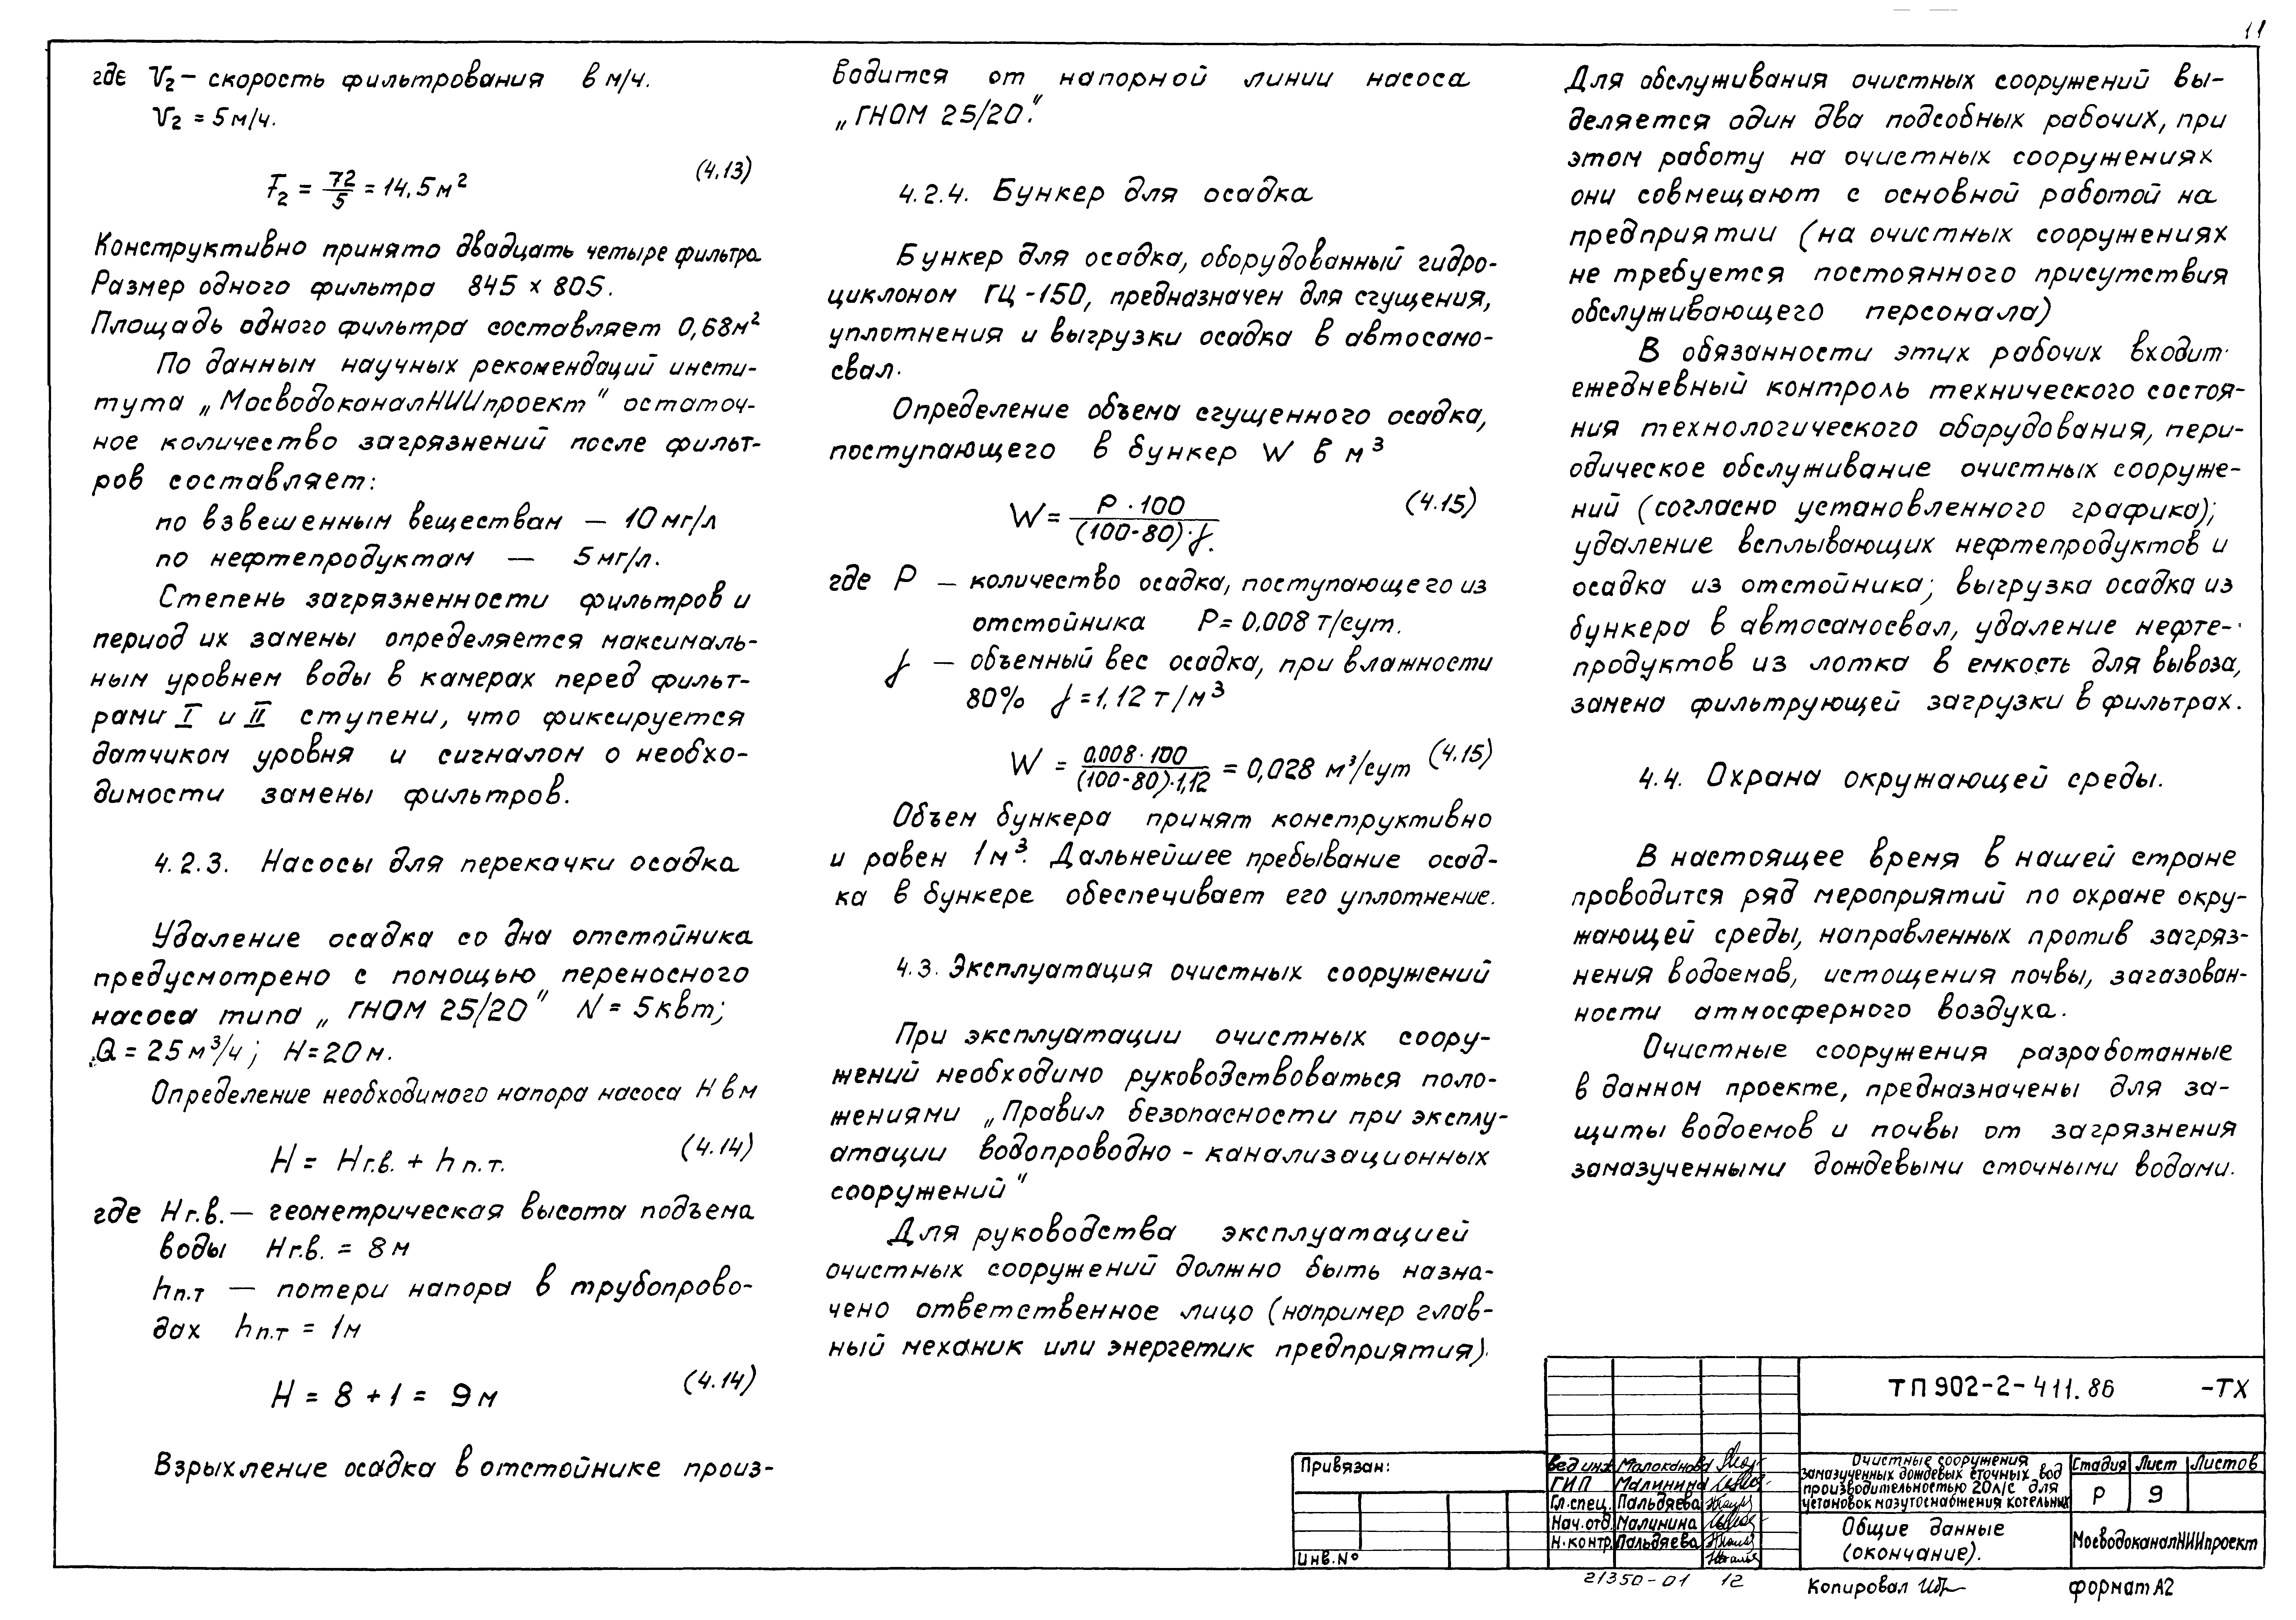 11
где V₂ – скорость фильтрования в м/ч.
V₂ = 5 м/ч.
F₂ = 72/5 = 14,5 м² (4.13)
Конструктивно принято двадцать четыре фильтра
Размер одного фильтра 845 х 805.
Площадь одного фильтра составляет 0,68 м²
По данным научных рекомендаций инсти-
тута „МосводоканалНИИпроект" остаточ-
ное количество загрязнений после фильт-
ров составляет:
по взвешенным веществам — 10 мг/л
по нефтепродуктам — 5 мг/л.
Степень загрязненности фильтров и
период их замены определяется максималь-
ным уровнем воды в камерах перед фильт-
рами I и II ступени, что фиксируется
датчиком уровня и сигналом о необхо-
димости замены фильтров.
4.2.3. Насосы для перекачки осадка
Удаление осадка со дна отстойника
предусмотрено с помощью переносного
насоса типа „ГНОМ 25/20" N = 5 квт;
Q = 25 м³/ч; Н = 20 м.
Определение необходимого напора насоса Н в м
Н = Нг.в. + hп.т. (4.14)
где Нг.в. — геометрическая высота подъема
воды Нг.в. = 8 м
hп.т — потери напора в трубопрово-
дах hп.т = 1 м
Н = 8 + 1 = 9 м (4.14)
Взрыхление осадка в отстойнике произ-
водится от напорной линии насоса
„ГНОМ 25/20".
4.2.4. Бункер для осадка
Бункер для осадка, оборудованный гидро-
циклоном ГЦ-150, предназначен для сгущения,
уплотнения и выгрузки осадка в автосамо-
свал.
Определение объема сгущенного осадка,
поступающего в бункер W в м³
W = P · 100 / (100-80) · f. (4.15)
где Р — количество осадка, поступающего из
отстойника Р = 0,008 т/сут.
f — объемный вес осадка, при влажности
80% f = 1,12 т/м³
W = 0,008 · 100 / (100-80) · 1,12 = 0,028 м³/сут (4.15)
Объем бункера принят конструктивно
и равен 1 м³. Дальнейшее пребывание осад-
ка в бункере обеспечивает его уплотнение.
4.3. Эксплуатация очистных сооружений
При эксплуатации очистных соору-
жений необходимо руководствоваться поло-
жениями „Правил безопасности при эксплу-
атации водопроводно-канализационных
сооружений"
Для руководства эксплуатацией
очистных сооружений должно быть назна-
чено ответственное лицо (например глав-
ный механик или энергетик предприятия).
Для обслуживания очистных сооружений вы-
деляется один два подсобных рабочих, при
этом работу на очистных сооружениях
они совмещают с основной работой на
предприятии (на очистных сооружениях
не требуется постоянного присутствия
обслуживающего персонала)
В обязанности этих рабочих входит
ежедневный контроль технического состоя-
ния технологического оборудования, пери-
одическое обслуживание очистных сооруже-
ний (согласно установленного графика);
удаление всплывающих нефтепродуктов и
осадка из отстойника; выгрузка осадка из
бункера в автосамосвал, удаление нефте-
продуктов из лотка в емкость для вывоза,
замена фильтрующей загрузки в фильтрах.
4.4. Охрана окружающей среды.
В настоящее время в нашей стране
проводится ряд мероприятий по охране окру-
жающей среды, направленных против загряз-
нения водоемов, истощения почвы, загазован-
ности атмосферного воздуха.
Очистные сооружения разработанные
в данном проекте, предназначены для за-
щиты водоемов и почвы от загрязнения
замазученными дождевыми сточными водами.
Привязан:
Инв. №
Вед инж Малоканова
ГИП Малинина
Гл.спец. Пальдяева
Нач.отд. Малинина
Н.контр. Пальдяева
ТП 902-2-411.86 -ТХ
Очистные сооружения
замазученных дождевых сточных вод
производительностью 20 л/с для
установок мазутоснабжения котельных
Стадия Лист Листов
Р 9
Общие данные
(окончание).
МосводоканалНИИпроект
21350-01 12
Копировал
формат А2